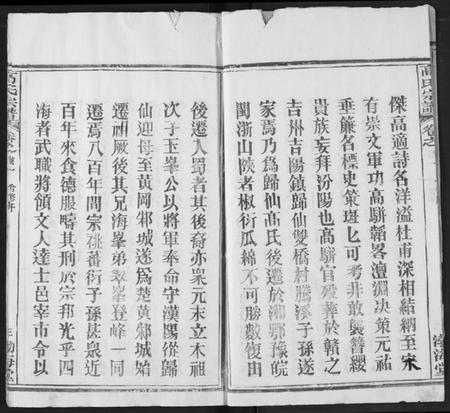 高氏宗譜
卷之
傑高適詩名洋溢杜甫深相結納至宋
有崇文軍功高騈韜畧澶淵决策元祐
垂簾名標史策斑七可考非敢襲簪纓
貴族妄拜汾陽也高騈官殁葬於贛之
吉州吉陽鎮歸仙雙橋村騰溪子孫遂
家焉乃為歸仙高氏後遷於湘鄂豫皖
閩浙山陝者椒衍瓜綿不可勝數復由
後遷入蜀者其後裔亦衆元末立木祖
次子玉峯公以將軍奉命守漢陽從歸
仙迎母至黄岡邾城遂為楚黄邾城始
遷祖厥後其兄海峯弟翠峯登峰一同
遷焉八百年間宗祧蕃衍子孫甚衆近
百年來食德服疇其刑於宗邦光乎四
海者武職將領文人達士邑宰市令以
高氏宗譜